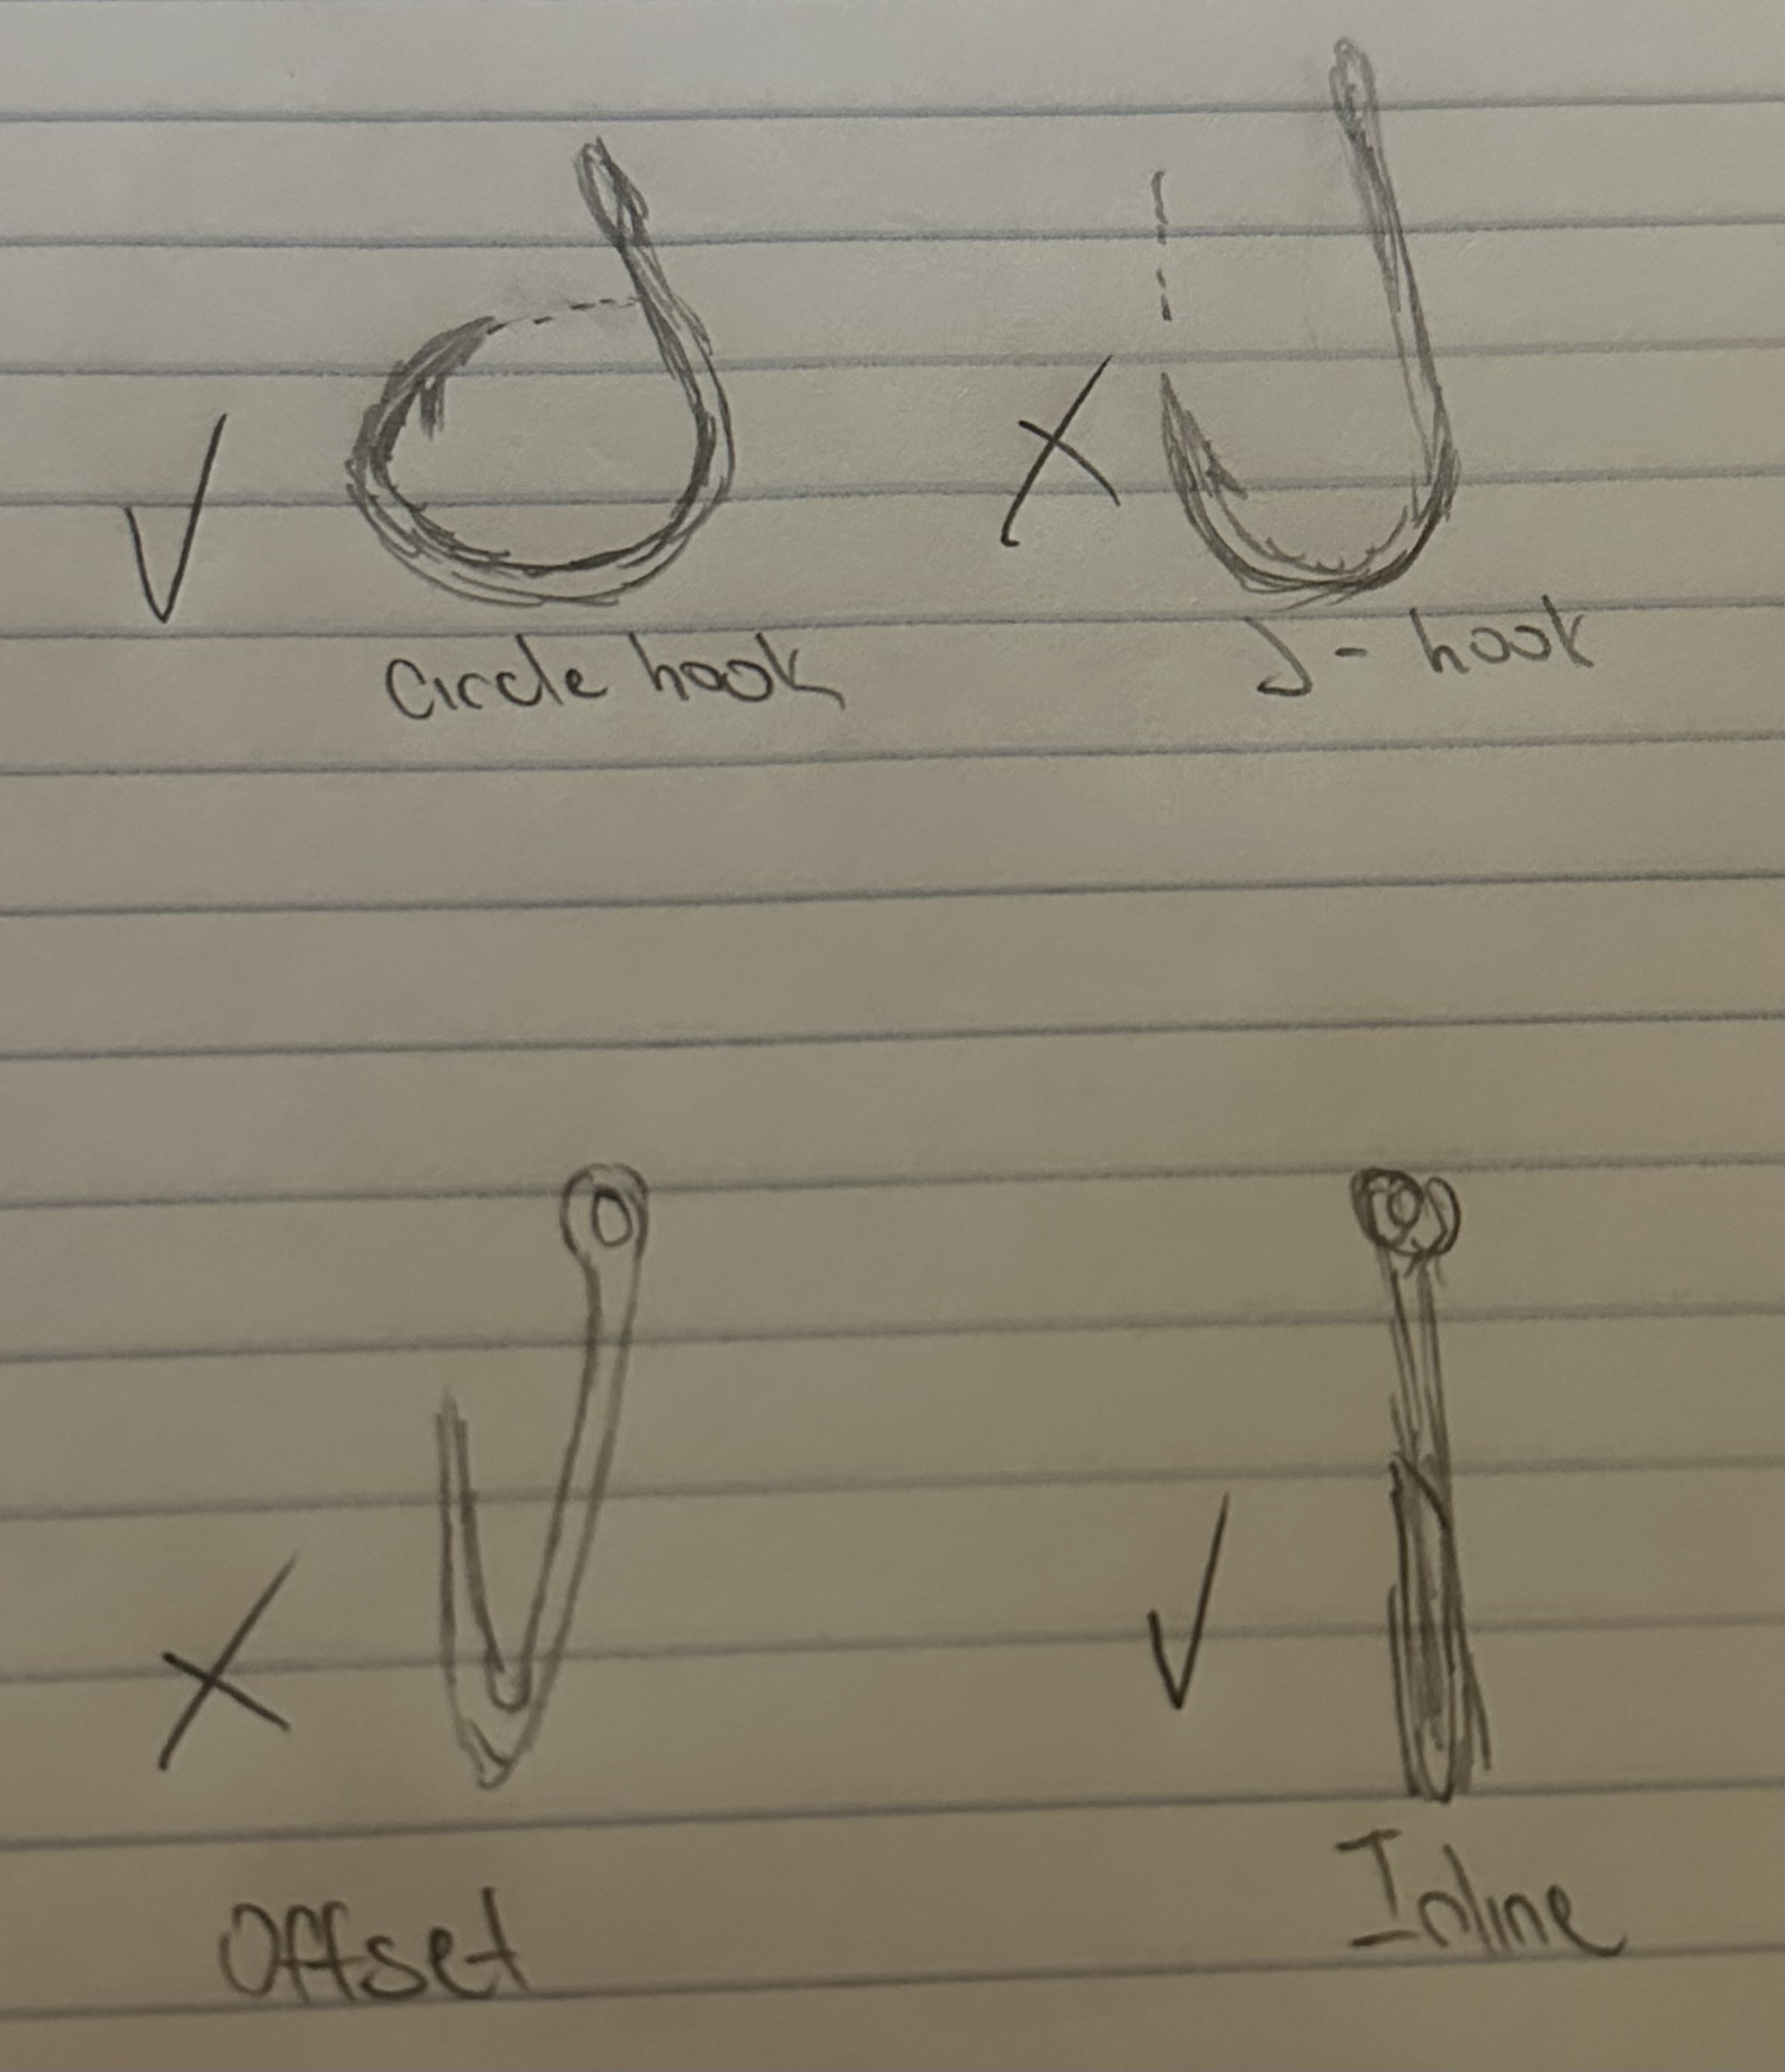 Circle hook
J-hook
Offset
Inline